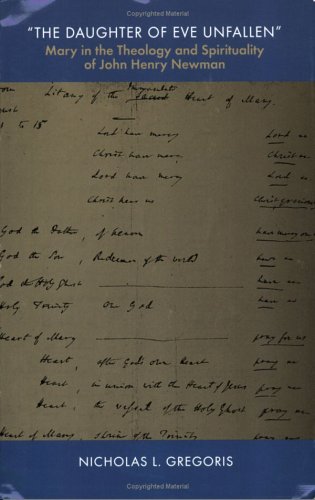 "THE DAUGHTER OF EVE UNFALLEN"
Mary in the Theology and Spirituality
of John Henry Newman
Immaculate
Litany of the Heart of Mary.
1 to 15
Lord have mercy Lord
Christ have mercy Christ
Lord have mercy Lord
Christ hear us Christ graciously
God the Father, of heaven have mercy on
God the Son, Redeemer of the world have
God the Holy Ghost have
Holy Trinity One God have
Heart of Mary pray for us
Heart, after God's own Heart pray
Heart, in union with the Heart of Jesus pray
Heart, the vessel of the Holy Ghost pray
Heart of Mary, shrine of the Trinity pray
NICHOLAS L. GREGORIS